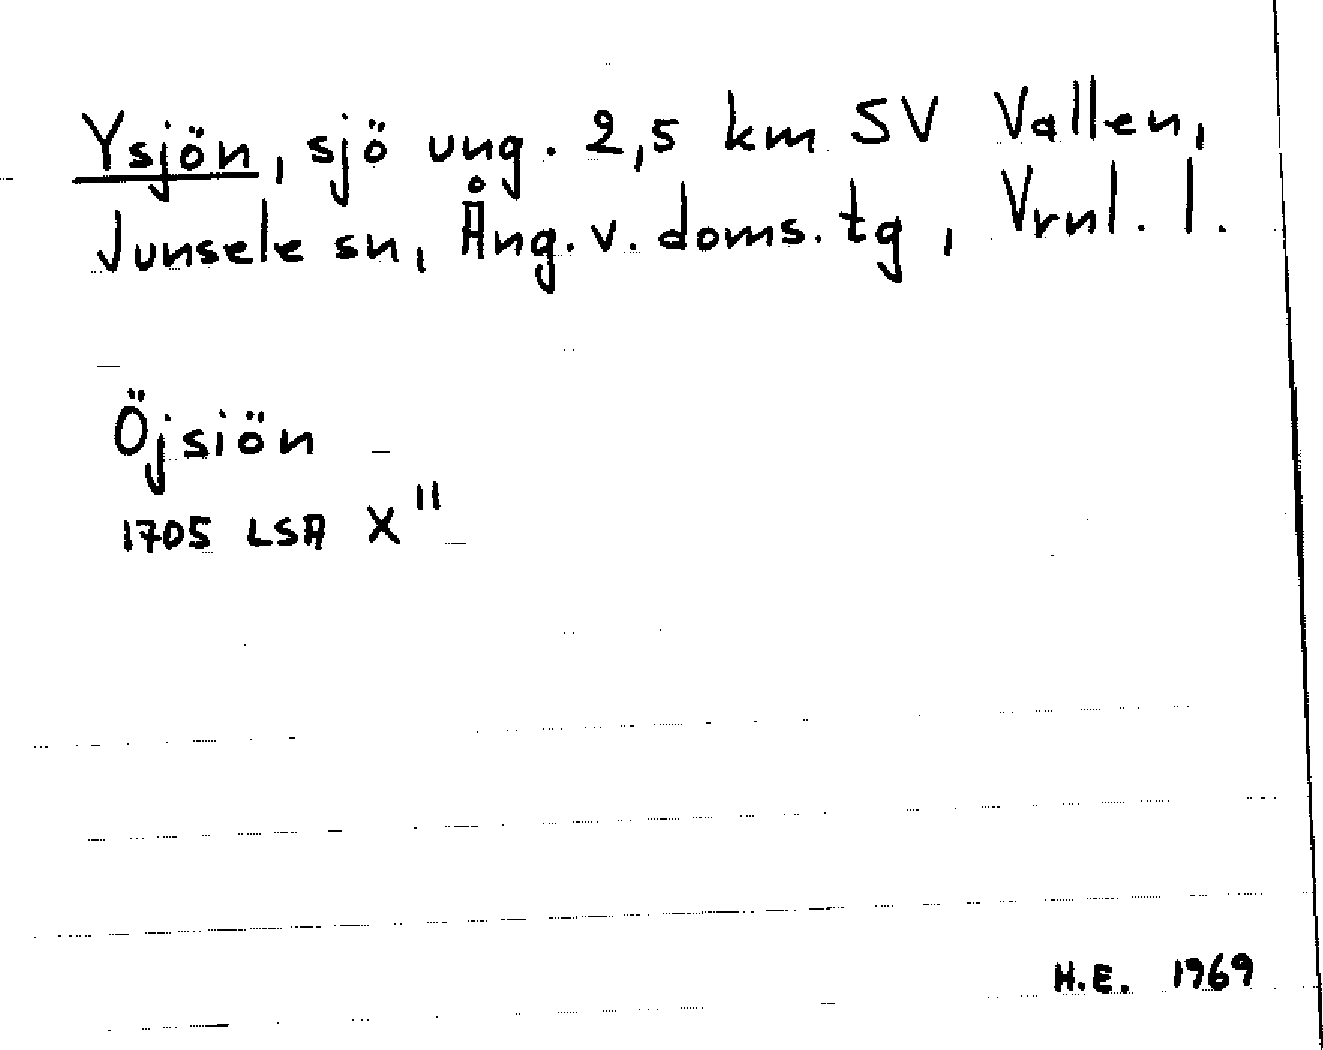 Ysjön, sjö ung. 2,5 km SV Vallen,
Junsele sn, Ång. v. doms. tg, Vrnl. l.
Öjsiön
1705 LSA X"
H.E. 1969